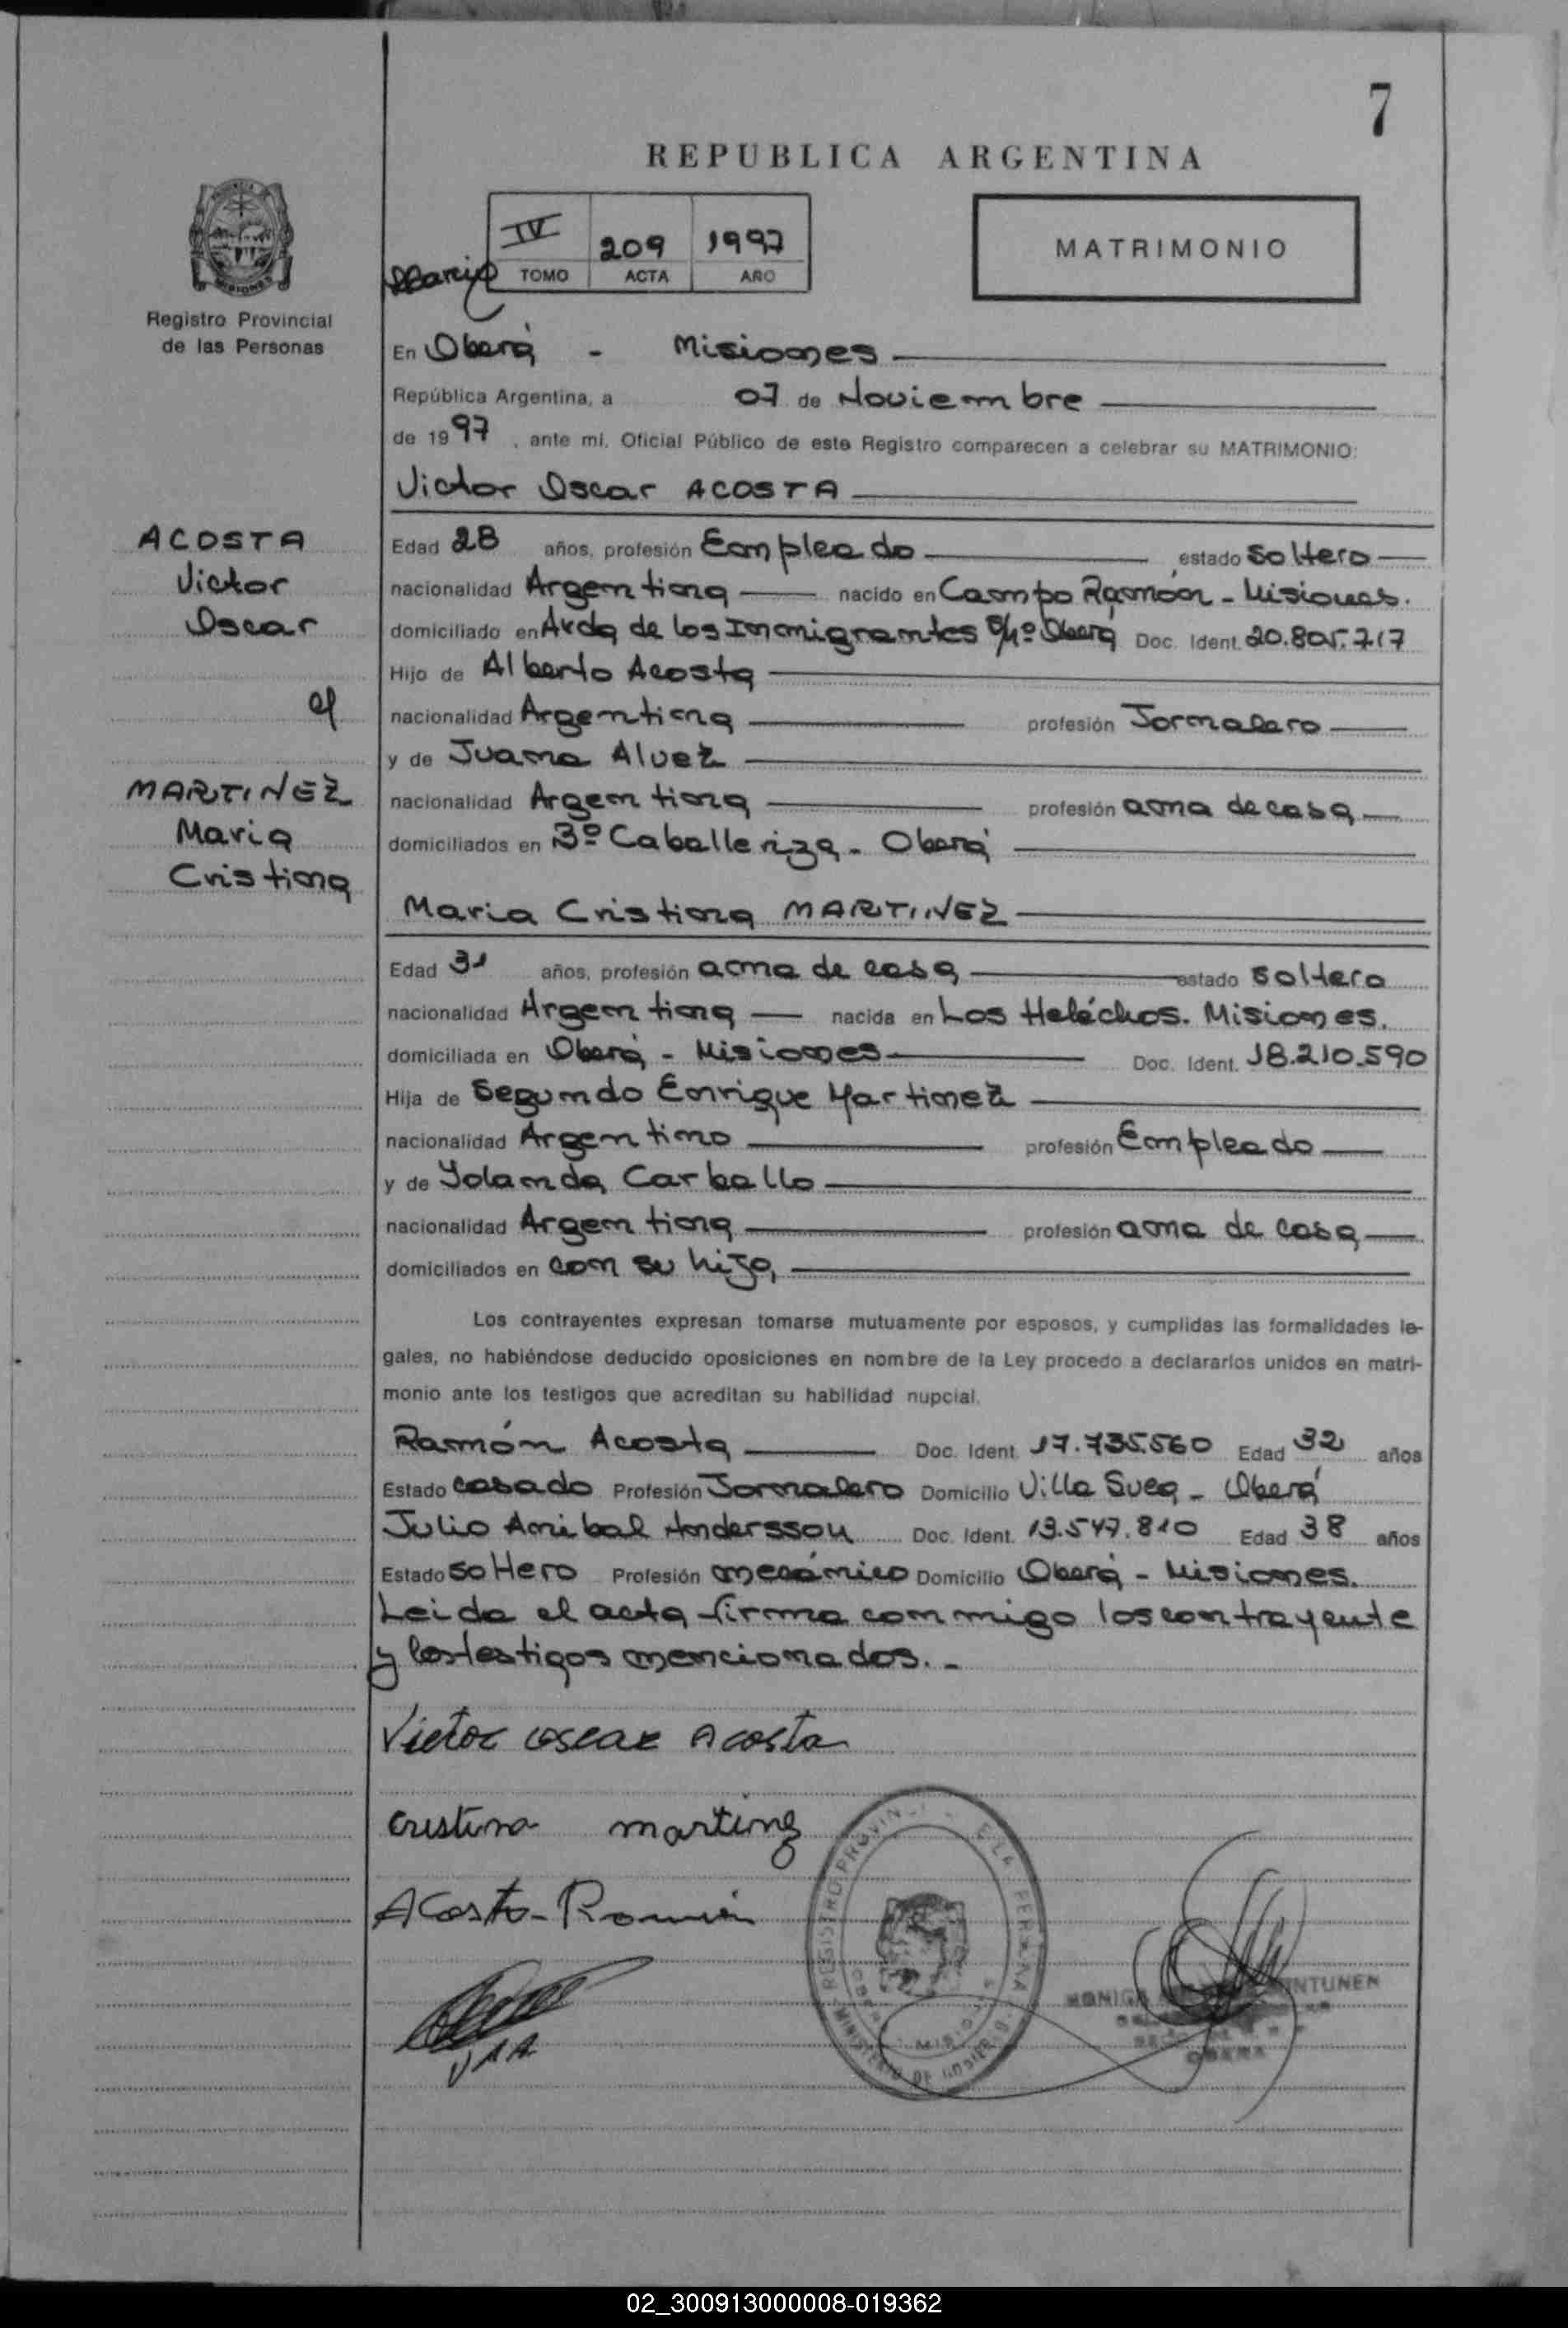 7
REPUBLICA ARGENTINA
IV 209 1997
TOMO ACTA AÑO
MATRIMONIO
Registro Provincial
de las Personas
En Oberá - Misiones
República Argentina, a 07 de Noviembre
de 1997, ante mí, Oficial Público de este Registro comparecen a celebrar su MATRIMONIO:
Victor Oscar ACOSTA
ACOSTA
Victor
Oscar
MARTINEZ
Maria
Cristina
Edad 28 años, profesión Empleado estado soltero
nacionalidad Argentina nacido en Campo Ramón - Misiones.
domiciliado en Avda de los Inmigrantes S/Nº Oberá Doc. Ident. 20.805.717
Hijo de Alberto Acosta
nacionalidad Argentina profesión Jornalero
y de Juana Alvez
nacionalidad Argentina profesión ama de casa
domiciliados en 3º Caballeriza - Oberá
Maria Cristina MARTINEZ
Edad 31 años, profesión ama de casa estado soltera
nacionalidad Argentina nacida en Los Heléchos. Misiones.
domiciliada en Oberá - Misiones Doc. Ident. 18.210.590
Hija de Segundo Enrique Martinez
nacionalidad Argentino profesión Empleado
y de Yolanda Carballo
nacionalidad Argentina profesión ama de casa
domiciliados en con su hija
Los contrayentes expresan tomarse mutuamente por esposos, y cumplidas las formalidades le-
gales, no habiéndose deducido oposiciones en nombre de la Ley procedo a declararlos unidos en matri-
monio ante los testigos que acreditan su habilidad nupcial.
Ramón Acosta Doc. Ident. 17.735.560 Edad 32 años
Estado casado Profesión Jornalero Domicilio Villa Suea - Oberá
Julio Anibal Andersson Doc. Ident. 13.547.810 Edad 38 años
Estado soltero Profesión mecánico Domicilio Oberá - Misiones.
Leida el acta firma conmigo los contrayente
y los testigos mencionados. -
Victor Oscar Acosta
Cristina Martinez
Acosta - Ramón
REGISTRO PROVINCIAL DE LA PERSONA
MINISTERIO DE GOBIERNO
MONICA
OBERA
02_300913000008-019362